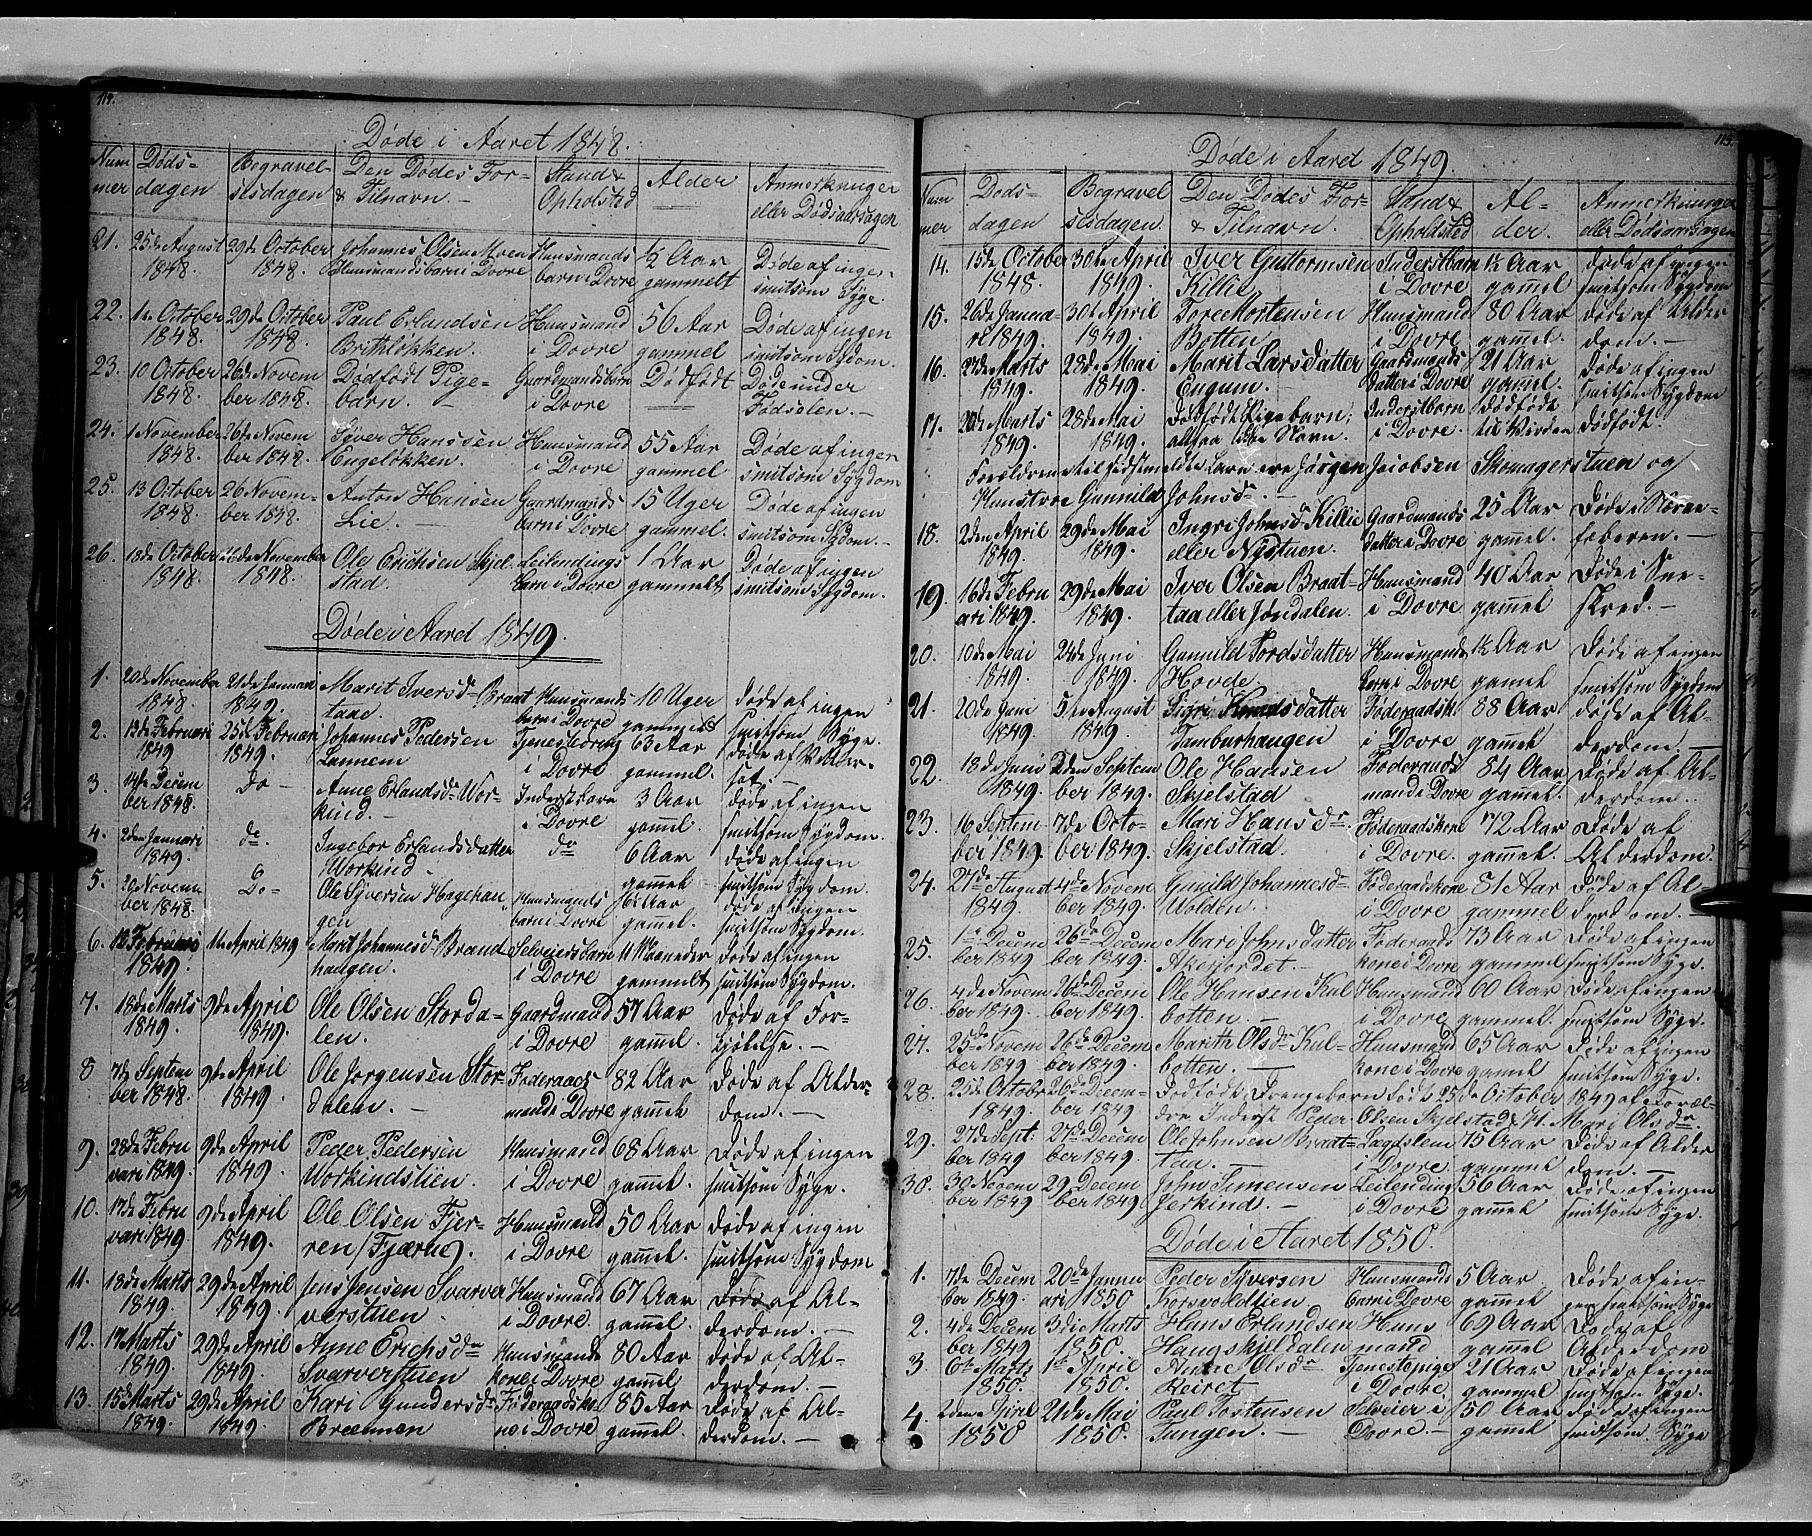 114.
Døde i Aaret 1848.
Nummer Dødsdagen Begravelsesdagen Den Dødes For- & Tilnavn. Stand & Opholsted Alder Anmerkninger eller Dødsaarsagen
21. 25de August 1848. 29de October 1848. Johannes Olsen Moen Huusmandsbarn Dovre Huusmandsbarn i Dovre ½ Aar gammelt Døde af ingen smitsom Syge.
22. 1te October 1848. 29de October 1848. Paul Erlandsen Brithløkken. Huusmand i Dovre 56 Aar gammel Døde af ingen smitsom Sydom.
23. 10 October 1848. 26de November 1848. Dødfødt Pigebarn. Gaardmandsbarn i Dovre Dødfødt Døde under Fødselen.
24. 1 November 1848. 26de November 1848. Syver Hanssen Engeløkken. Huusmand i Dovre 55 Aar gammel Døde af ingen smitsom Sygdom
25. 13 October 1848. 26 November 1848. Anton Hansen Lie. Gaardmandsbarn i Dovre 15 Uger gammel. Døde af ingen smitsom Sydom.
26. 18de October 1848. 26de November 1848. Ole Erichsen Skjelstad. Leilendingsbarn i Dovre 1 Aar gammelt Døde af ingen smitsom Sygdom.
Døde i Aaret 1849.
1. 20de November 1848 21de Januari 1849. Marit Iversd Braattaae. Huusmandsbarn i Dovre 10 Uger gammelt døde af ingen smitsom Syge.
2. 13de Februari 1849 25de Februari 1849. Johannes Pedersen Lannem Tjenestedreng i Dovre 63 Aar gammel. døde af
3. 14de December 1848. do Anne Erlandsd Workind. Inderstbarn i Dovre 3 Aar gamel. døde af ingen smitsom Sygdom.
4. 2den Januari 1849. do. Ingebor Erlandsdatter Workind do 6 Aar gammel døde af ingen smitsom Sygdom.
5. 20 November 1848. Do Ole Syversen Hagehaugen Huusmandsbarn i Dovre 6 Aar gamel. døde af ingen smitsom Sygdom.
6. 12 Februari 1849. 11te April 1849 Marit Johannesd Brandhaugen. Selveiersbarn i Dovre 11 Maaneder gammelt døde af ingen smitsom Sygdom.
7. 18de Marts 1849. 9de April 1849. Ole Olsen Stordalen. Gaardmand i Dovre 57 Aar gamel. døde af Forkjølelse.
8 7de September 1848. 9de April 1849. Ole Jorgensen Stordalen. Føderaadsmand i Dovre 82 Aar gamel døde af Alderdom.
9. 28de Februari 1849. 9de April 1849. Peder Pedersen Workindslien. Huusmand i Dovre 68 Aar gammel. døde af ingen smitsom Syge.
10. 17de Februari 1849 9de April 1849. Ole Olsen Fjerren (Fjærne). Huusmand i Dovre 50 Aar gamel. døde af ingen smitsom Sygdom
11. 18de Marts 1849. 29de April 1849. Jens Jensen Svarverstuen. Huusmand i Dovre. 67 Aar gamel. døde af Alderdom.
12. 17 Marts 1849. 29de April 1849. Anne Erichsd Svarverstuen Huusmandskone i Dovre 80 Aar gamel døde af Alderdom.
13. 15d Marts 1849. 29de April 1849 Kari Gundersd Breennen Føderaadskone i Dovre 85 Aar gamel. døde af Alderdom.
115.
Døde i Aaret 1849.
Nummer Dødsdagen Begravelsesdagen. Den Dødes For- & Tilnavn. Stand & Opholdsted Alder. Anmerkninger eller Dødsaarsagen
14. 15de October 1848. 30te April 1849. Iver Guttormsen Killie. Inderstbarn i Dovre 1½ Aar gammel døde af ingen smitsom Sygdom
15. 26de Januare 1849. 30t April 1849. Tore Mortensen Botten Huusmand i Dovre 80 Aar gamel. døde af Alderdom.
16. 27de Marts 1849. 28de Mai 1849. Marit Larsdatter Engum. Gaardmandsdatter i Dovre 21 Aar gamel. døde af ingen smitsom Sygdom
17. 20de Marts 1849. 28de Mai 1849. Dødfødt Pigebarn; altsaa ikke Navn. Inderstbarn i Dovre. dødfødt til Verden dødfødt.
Forældrene til dødfødte Barn ere Jørgen Jacobsen Skomagerstuen og
Hustroe Gunnild Johnsd.
18. 2den April 1849. 29de Mai 1849. Ingri Johnsd Killie eller Nystuen. Gaardmandsdatter i Dovre 25 Aar gamel. døde i
19. 16de Februari 1849. 29de Mai 1849. Iver Olsen Braattaa eller Jøndalen. Huusmand i Dovre 40 Aar gammel døde i Sneeskred.
20. 10de Mai 1849. 24de Juni 1849. Gunnild Tordsdatter Hovde. Huusmandsbarn i Dovre ½ Aar gamel døde af ingen smitsom Sygdom
21. 20de Juni 1849. 5te August 1849. Sigri Knudsdatter Tamburhaugen Føderaadsk. i Dovre 88 Aar gamel. døde af Alderdom.
22. 18de Juni 1849. 2den September 1849. Ole Hansen Skjelstad Føderaadsmand i Dovre 84 Aar gamel. døde af Alderdom.
23. 16 September 1849. 7de October 1849. Mari Hansd. Skjelstad. Føderaadskone i Dovre. 72 Aar gamel. døde af Alderdom.
24. 27de August 1849. 4de November 1849. Gunild Johannesd Wolden. Føderaadskone i Dovre 81 Aar gammel døde af Alderdom.
25. 1te December 1849. 26de December 1849. Mari Johnsdatter Akerjordet. Føderaadskone i Dovre 73 Aar gammel. døde af ingen smitsom Syge.
26. 4de November 1849. 26de December 1849. Ole Hansen Kulbotten. Huusmand i Dovre. 60 Aar gammel. døde af ingen smitsom Syge.
27. 25de November 1849. 26de December 1849. Marith Olsd Kulbotten. Huusmandskone i Dovre 65 Aar gamel døde af ingen smitsom Syge.
28. 25de Octobr 1849. 26de December 1849 Dødfødt Drengebarn født 25de October 1849 af Forældrene Inderst Peder Olsen Skjelstad & H. Mari Olsd.
29. 27de September 1849 27de December 1849. Ole Johnsen Braattaa. Lægdslem i Dovre. 75 Aar gamel døde af Alderdom.
30. 30 November 1849 29 December 1849 John Simensen Jerkind. Leilending i Dovre 56 Aar gamel døde af ingen smitsom Syge.
Døde i Aaret 1850.
1. 7de December 1849. 20de Januari 1850 Peder Syversen Forsvoldlien Huusmandsbarn i Dovre 5 Aar gammel døde af ingen smitsom Syge
2. 4de December 1849 3die Marts 1850. Hans Erlandsen Haugskjeldalen Huusmand 69 Aar gammel Døde af Alderdom
3. 6te Marts 1850. 1te April 1850. Anne Olsd Reiret Tjenestepige i Dovre 21 Aar gammel døde af ingen smitsom Syge.
4. 2den April 1850 21de Mai 1850. Paul Tostensen Tungen. Selveier i Dovre. 50 Aar gamel døde af ingen smitsom Syge